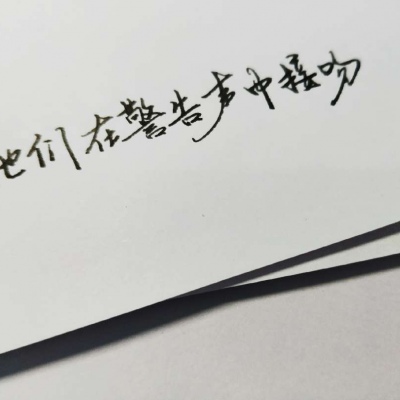 他们在警告声中接吻